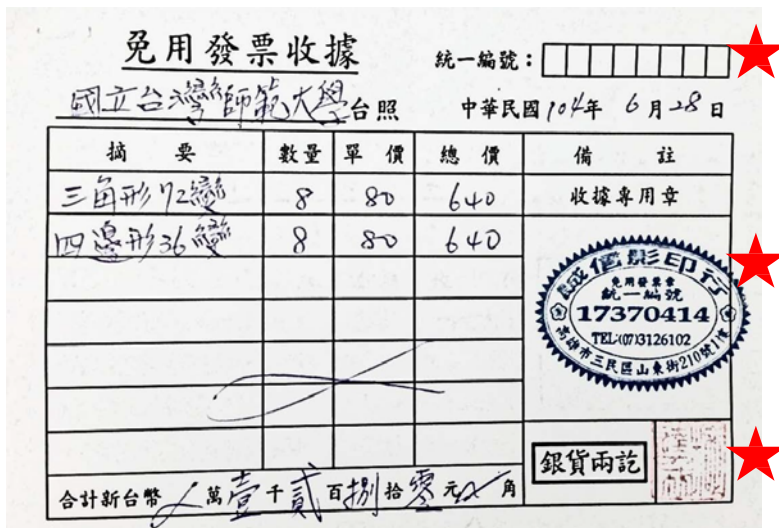 免用發票收據
統一編號：
國立台灣師範大學台照
中華民國104年6月28日
摘要 數量 單價 總價 備註
三角形72變 8 80 640 收據專用章
四邊形36變 8 80 640
誠信影印行
免用發票章
統一編號
17370414
TEL:(07)3126102
高雄市三民區山東街210號1樓
銀貨兩訖
合計新台幣 萬壹千貳百捌拾零元 角